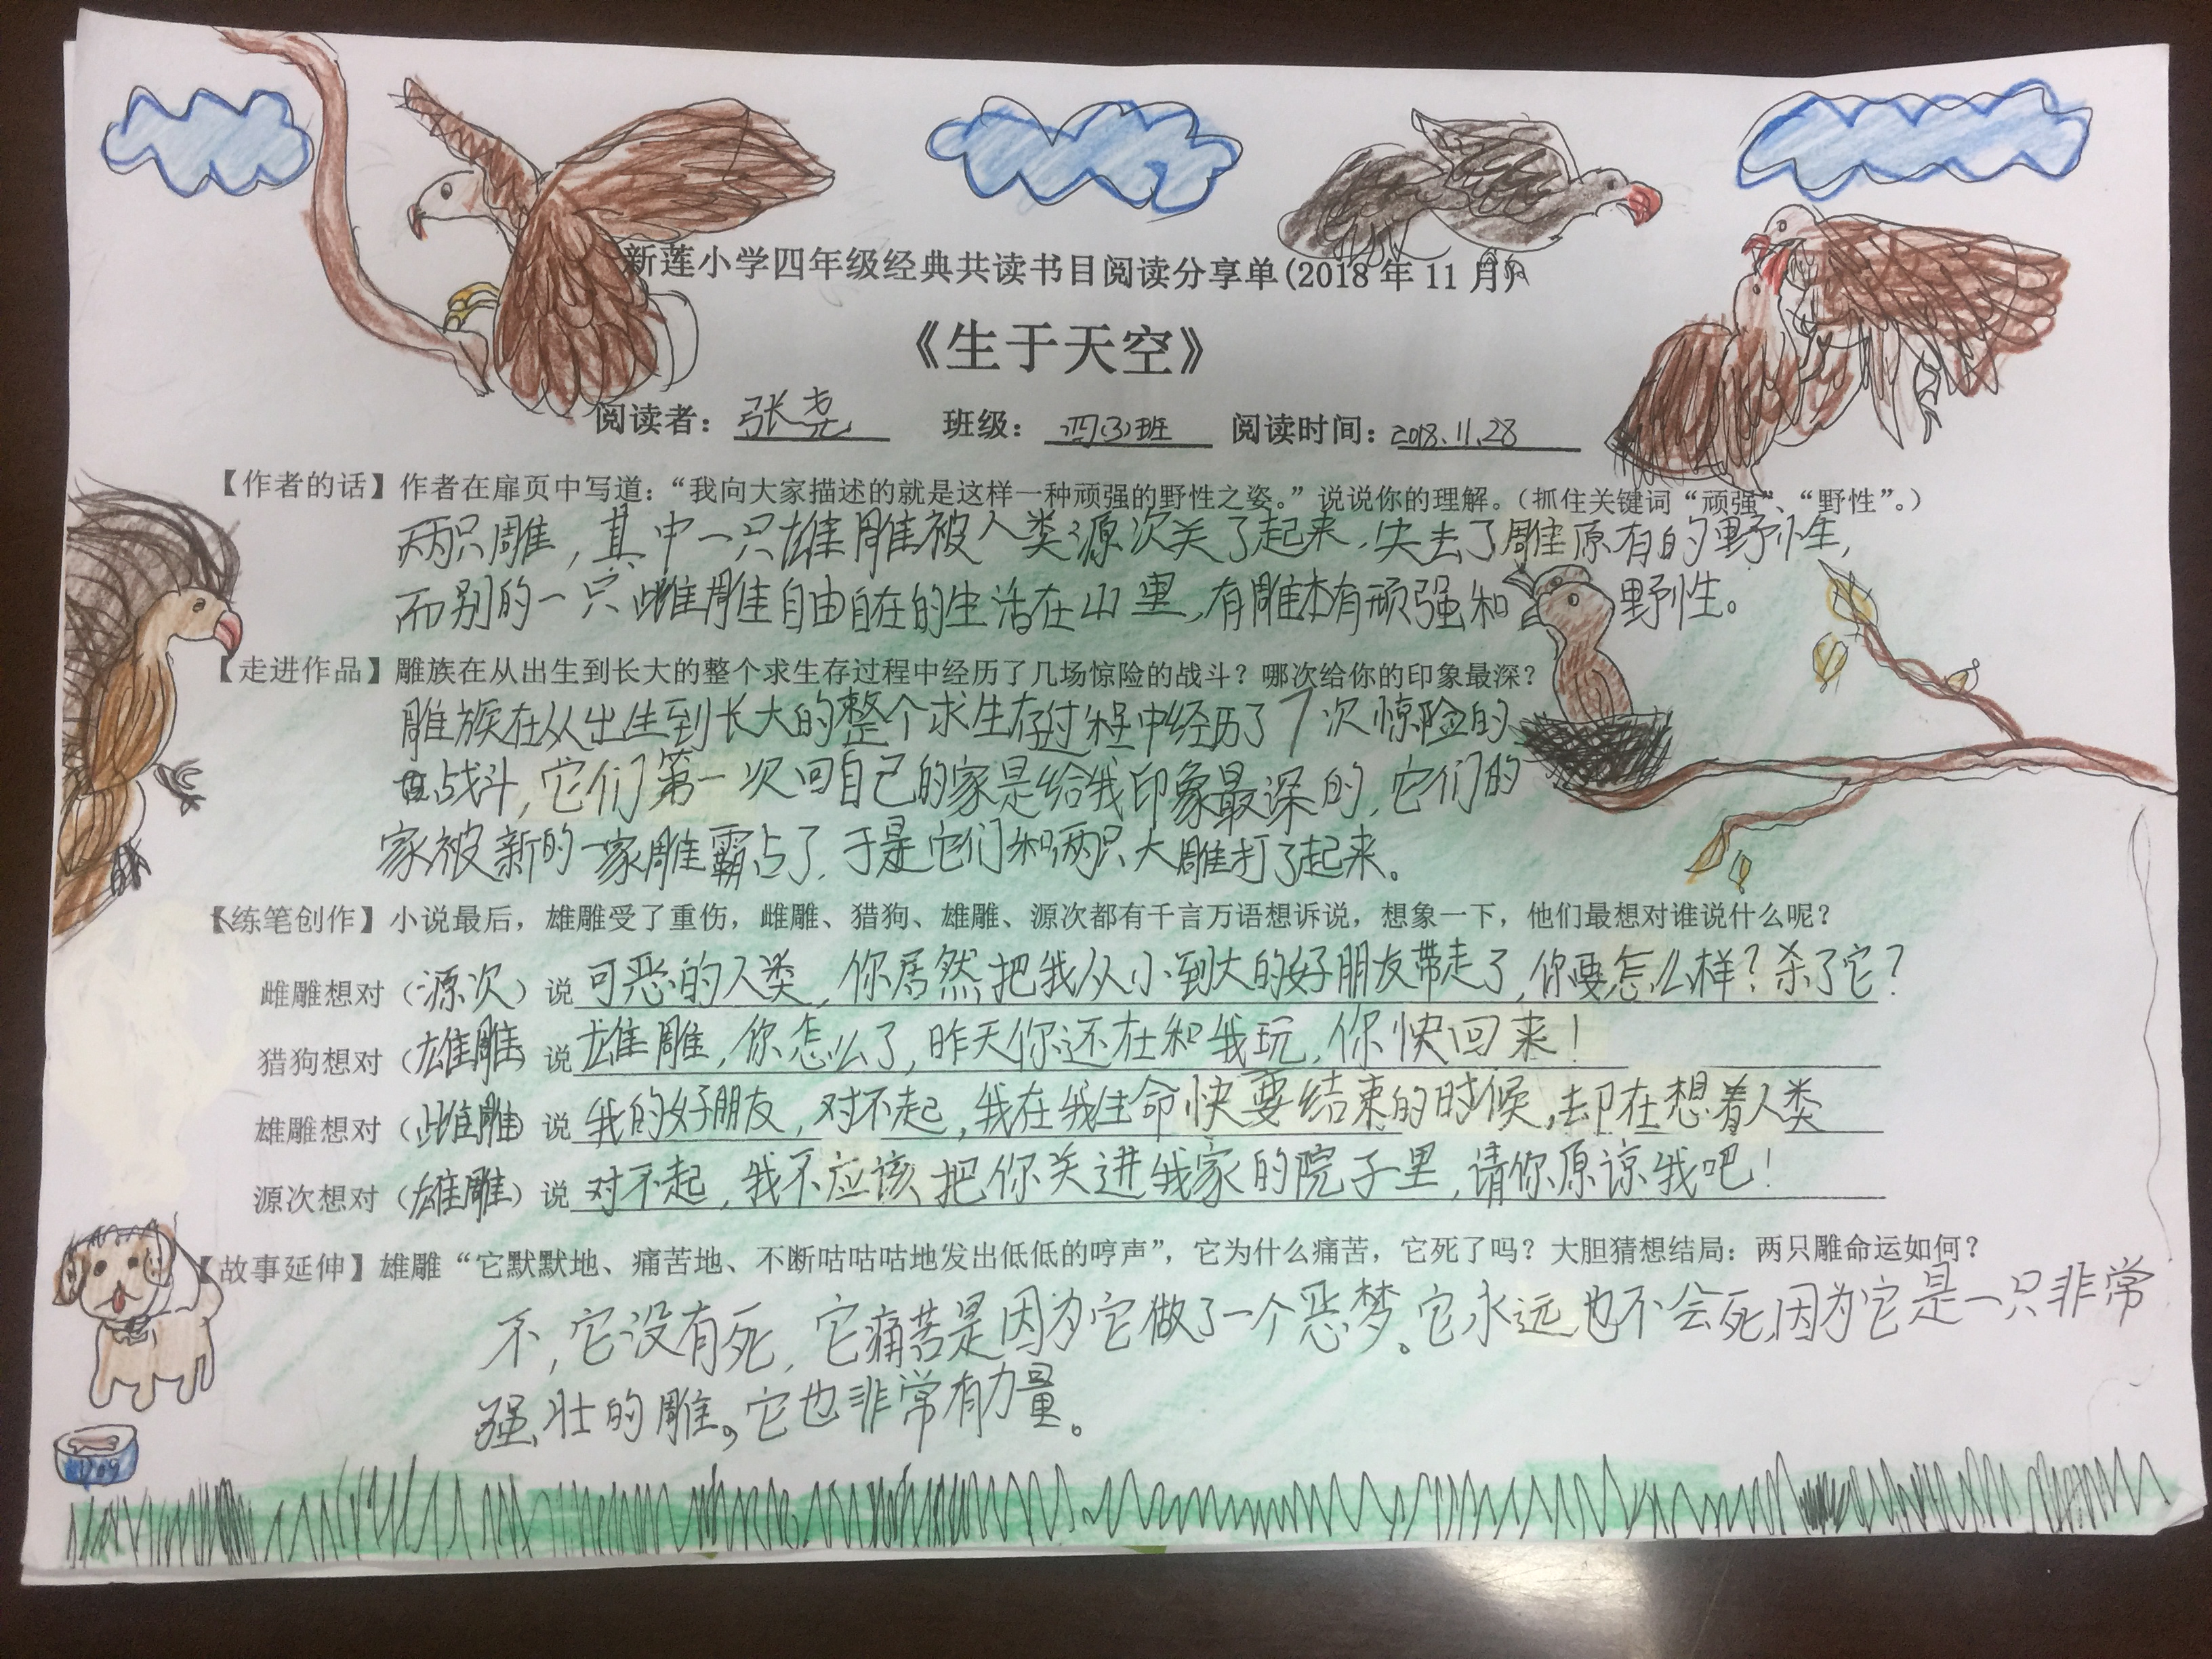 新莲小学四年级经典共读书目阅读分享单(2018年11月)
《生于天空》
阅读者：张尧 班级：四(3)班 阅读时间：2018.11.28
【作者的话】作者在扉页中写道：“我向大家描述的就是这样一种顽强的野性之姿。”说说你的理解。（抓住关键词“顽强”、“野性”。）
两只雕，其中一只雄雕被人类源次关了起来，失去了雕原有的野性，
而别的一只雌雕自由自在的生活在山里，有雕本有顽强和野性。
【走进作品】雕族在从出生到长大的整个求生存过程中经历了几场惊险的战斗？哪次给你的印象最深？
雕族在从出生到长大的整个求生存过程中经历了7次惊险的
战斗，它们第一次回自己的家是给我印象最深的，它们的
家被新的一家雕霸占了，于是它们和两只大雕打了起来。
【练笔创作】小说最后，雄雕受了重伤，雌雕、猎狗、雄雕、源次都有千言万语想诉说，想象一下，他们最想对谁说什么呢？
雌雕想对（源次）说可恶的人类，你居然把我从小到大的好朋友带走了，你要怎么样？杀了它？
猎狗想对（雄雕）说雄雕，你怎么了，昨天你还在和我玩，你快回来！
雄雕想对（雌雕）说我的好朋友，对不起，我在我生命快要结束的时候，却在想着人类
源次想对（雄雕）说对不起，我不应该把你关进我家的院子里，请你原谅我吧！
【故事延伸】雄雕“它默默地、痛苦地、不断咕咕咕地发出低低的哼声”，它为什么痛苦，它死了吗？大胆猜想结局：两只雕命运如何？
不，它没有死，它痛苦是因为它做了一个恶梦。它永远也不会死，因为它是一只非常
强壮的雕。它也非常有力量。
DOG